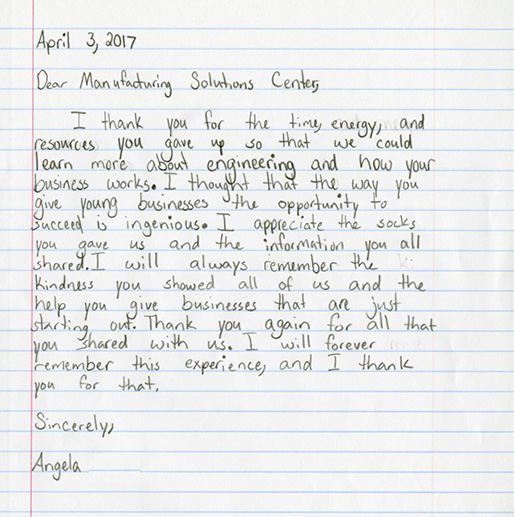 April 3, 2017
Dear Manufacturing Solutions Center,
I thank you for the time, energy, and
resources you gave up so that we could
learn more about engineering and how your
business works. I thought that the way you
give young businesses the opportunity to
succeed is ingenious. I appreciate the socks
you gave us and the information you all
shared. I will always remember the
kindness you showed all of us and the
help you give businesses that are just
starting out. Thank you again for all that
you shared with us. I will forever
remember this experience, and I thank
you for that.
Sincerely,
Angela